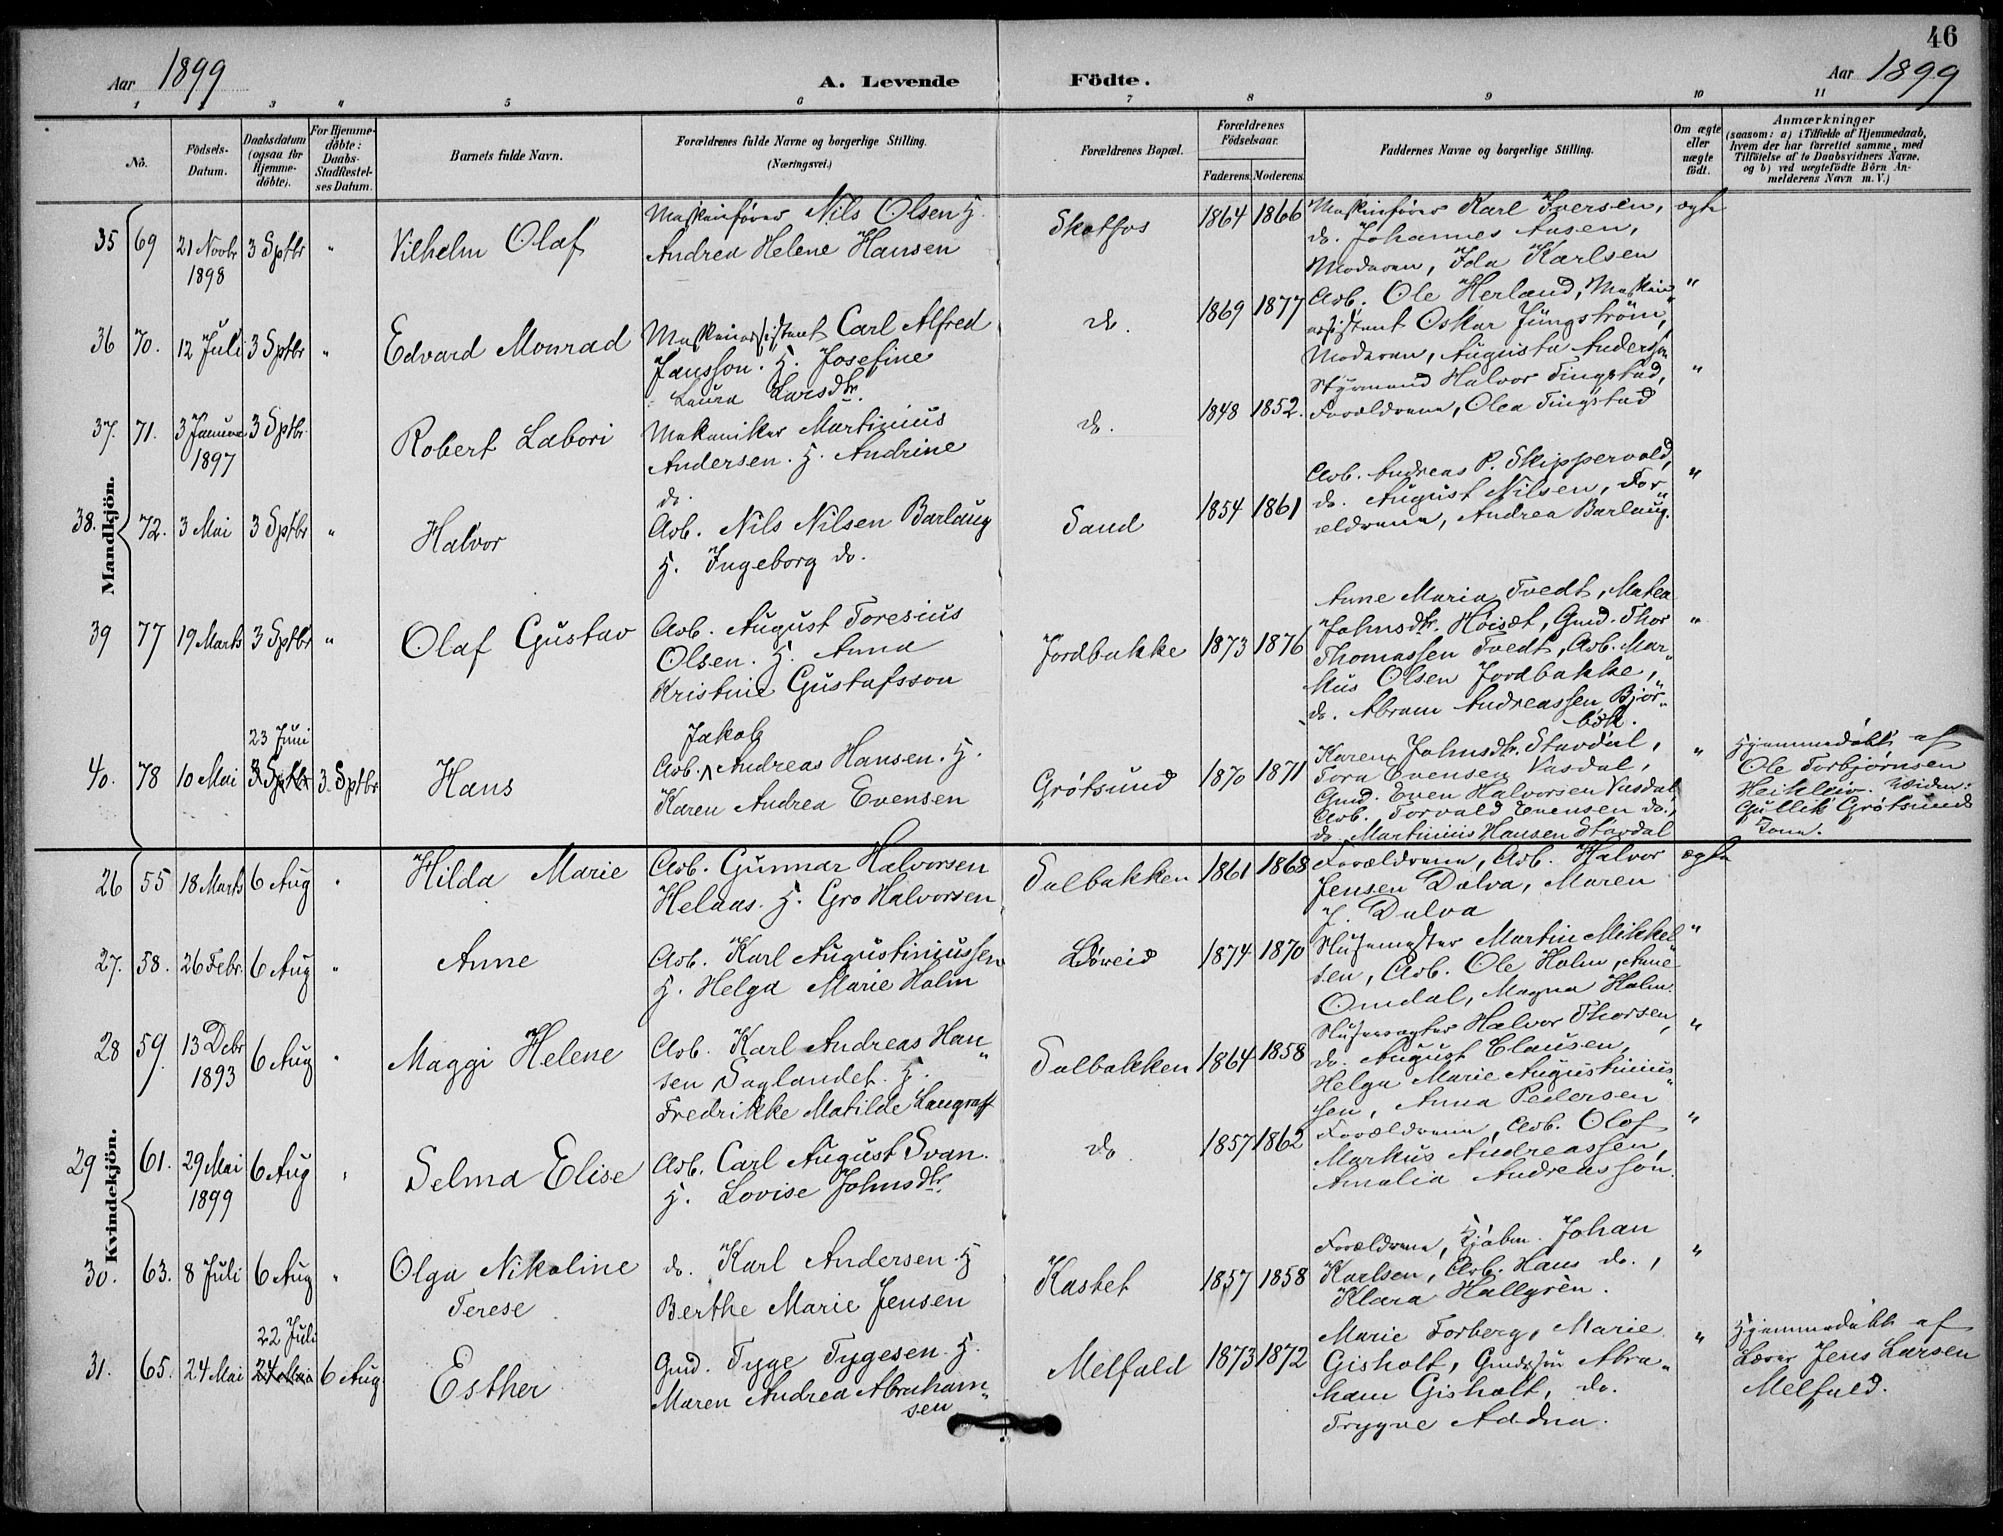 46
Aar 1899
A. Levende Födte.
Aar 1899
1 2 3 4 5 6 7 8 9 10 11
No.
Födsels-Datum.
Daabsdatum (ogsaa for Hjemme-döbte).
For Hjemme-döbte: Daabs-Stadfæstel-ses Datum.
Barnets fulde Navn.
Forældrenes fulde Navne og borgerlige Stilling.
(Næringsvei.)
Forældrenes Bopæl.
Forældrenes Födselsaar.
Faderens. Moderens.
Faddernes Navne og borgerlige Stilling.
Om ægte eller uægte födt.
Anmærkninger
(saasom: a) i Tilfælde af Hjemmedaab,
hvem der har forrettet samme, med
Tilföielse af to Daabsvidners Navne,
og b) ved uægtefödte Börn An-
melderens Navn m. V.)
Mandkjön.
35 69 21 Novbr 1898 3 Sptbr " Vilhelm Olaf
Maskinförer Nils Olsen H.
Andrea Helene Hansen
Skotfos 1864 1866
Maskinförer Karl Iversen,
do. Johannes Aasen,
Moderen, Ida Karlsen
ægte
36 70. 12 Juli 3 Sptbr " Edvard Monrad
Maskinassistent Carl Alfred
Jansson. H. Josefine
Laura Larsdtr.
do. 1869 1877
Arb. Ole Herland, Maskin
assistent Oskar Jüngström,
Moderen, Augusta Andersson
"
37. 71. 3 Januar 1897 3 Sptbr. Robert Labori
Mekaniker Martinius
Andersen. H. Andrine
do.
do. 1848 1852.
Styrmand Halvor Tingstad,
Forældrene, Olea Tingstad
"
38. 72. 3 Mai 3 Sptbr " Halvor
Arb. Nils Nilsen Barlaug
H. Ingeborg do.
Sand 1854 1861
Arb. Andreas P. Skippervold,
do. August Nilsen, For„
ældrene, Andrea Barlaug.
"
39 77 19 Marts 3 Sptbr " Olaf Gustav
Arb. August Toresius
Olsen. H. Anna
Kristine Gustafsson
Jordbakke 1873 1876
Anne Maria Tvedt, Matea
Johnsdtr. Höisæt, Gmd. Thor
Thomassen Tvedt, Arb. Mar„
kus Olsen Jordbakke,
do. Abram Andreassen Bjor„
bök.
"
40. 78 10 Mai 23 Juni 3 Sptbr 3 Sptbr Hans
Jakob
Arb. Andreas Hansen. H.
Karen Andrea Evensen
Grötsund 1870 1871
Karen Johnsdtr. Stavdal,
Tora Evensen Vasdal,
Gmd. Even Halvorsen Vasdal,
Arb. Torvald Evensen do.,
do. Martinius Hansen Stavdal
"
Hjemmedöbt af
Ole Torbjornsen
Heikleiv. Widn:
Gullik Grötsund
Kvindekjön.
26 55 18 Marts 6 Aug " Hilda Marie
Arb. Gunnar Halvorsen
Helaas. H. Gro Halvorsen
Solbakken 1861 1868
Forældrene, Arb. Halvor
Jensen Dalva, Maren
J. Dalva
ægte
27. 58. 26 Febr. 6 Aug " Anne
Arb. Karl Augustiniussen
H. Helga Marie Holm
Löveid 1874 1870
Slusemester Martin Mikkel
sen, Arb. Ole Holm, Anne
Omdal, Magna Holm.
"
28 59. 13 Debr 1893 6 Aug " Maggi Helene
Arb. Karl Andreas Han„
sen Saglandet. H.
Fredrikke Matilde Langraff
Solbakken 1864 1858
Slusevogter Halvor Thorsen,
do. August Clausen,
Helga Marie Augustinius„
sen, Anna Pedersen
"
29 61. 29 Mai 1899 6 Aug " Selma Elise
Arb. Carl August Svan.
H. Lovise Johnsdtr.
do 1857 1862
Forældrene, Arb. Olof
Markus Andreassen,
Amalia Andreasson.
"
30. 63. 8 Juli 6 Aug " Olga Nikoline
Terese
do. Karl Andersen. H
Berthe Marie Jensen
Kastet 1857 1858
Forældrene, Kjöbm. Johan
Karlsen, Arb. Hans do.,
Klara Hallgrèn.
"
31. 65. 24 Mai 22 Juli 24 Mai 6 Aug Esther
Gmd. Tyge Tygesen. H.
Maren Andrea Abraham„
sen
Melfald 1873 1872
Marie Forberg, Marie
Gisholt, Gmdssön Abra„
ham Gisholt, do.
Trygve Addna.
"
Hjemmedöbt af
Lærer Jens Larsen
Melfald.